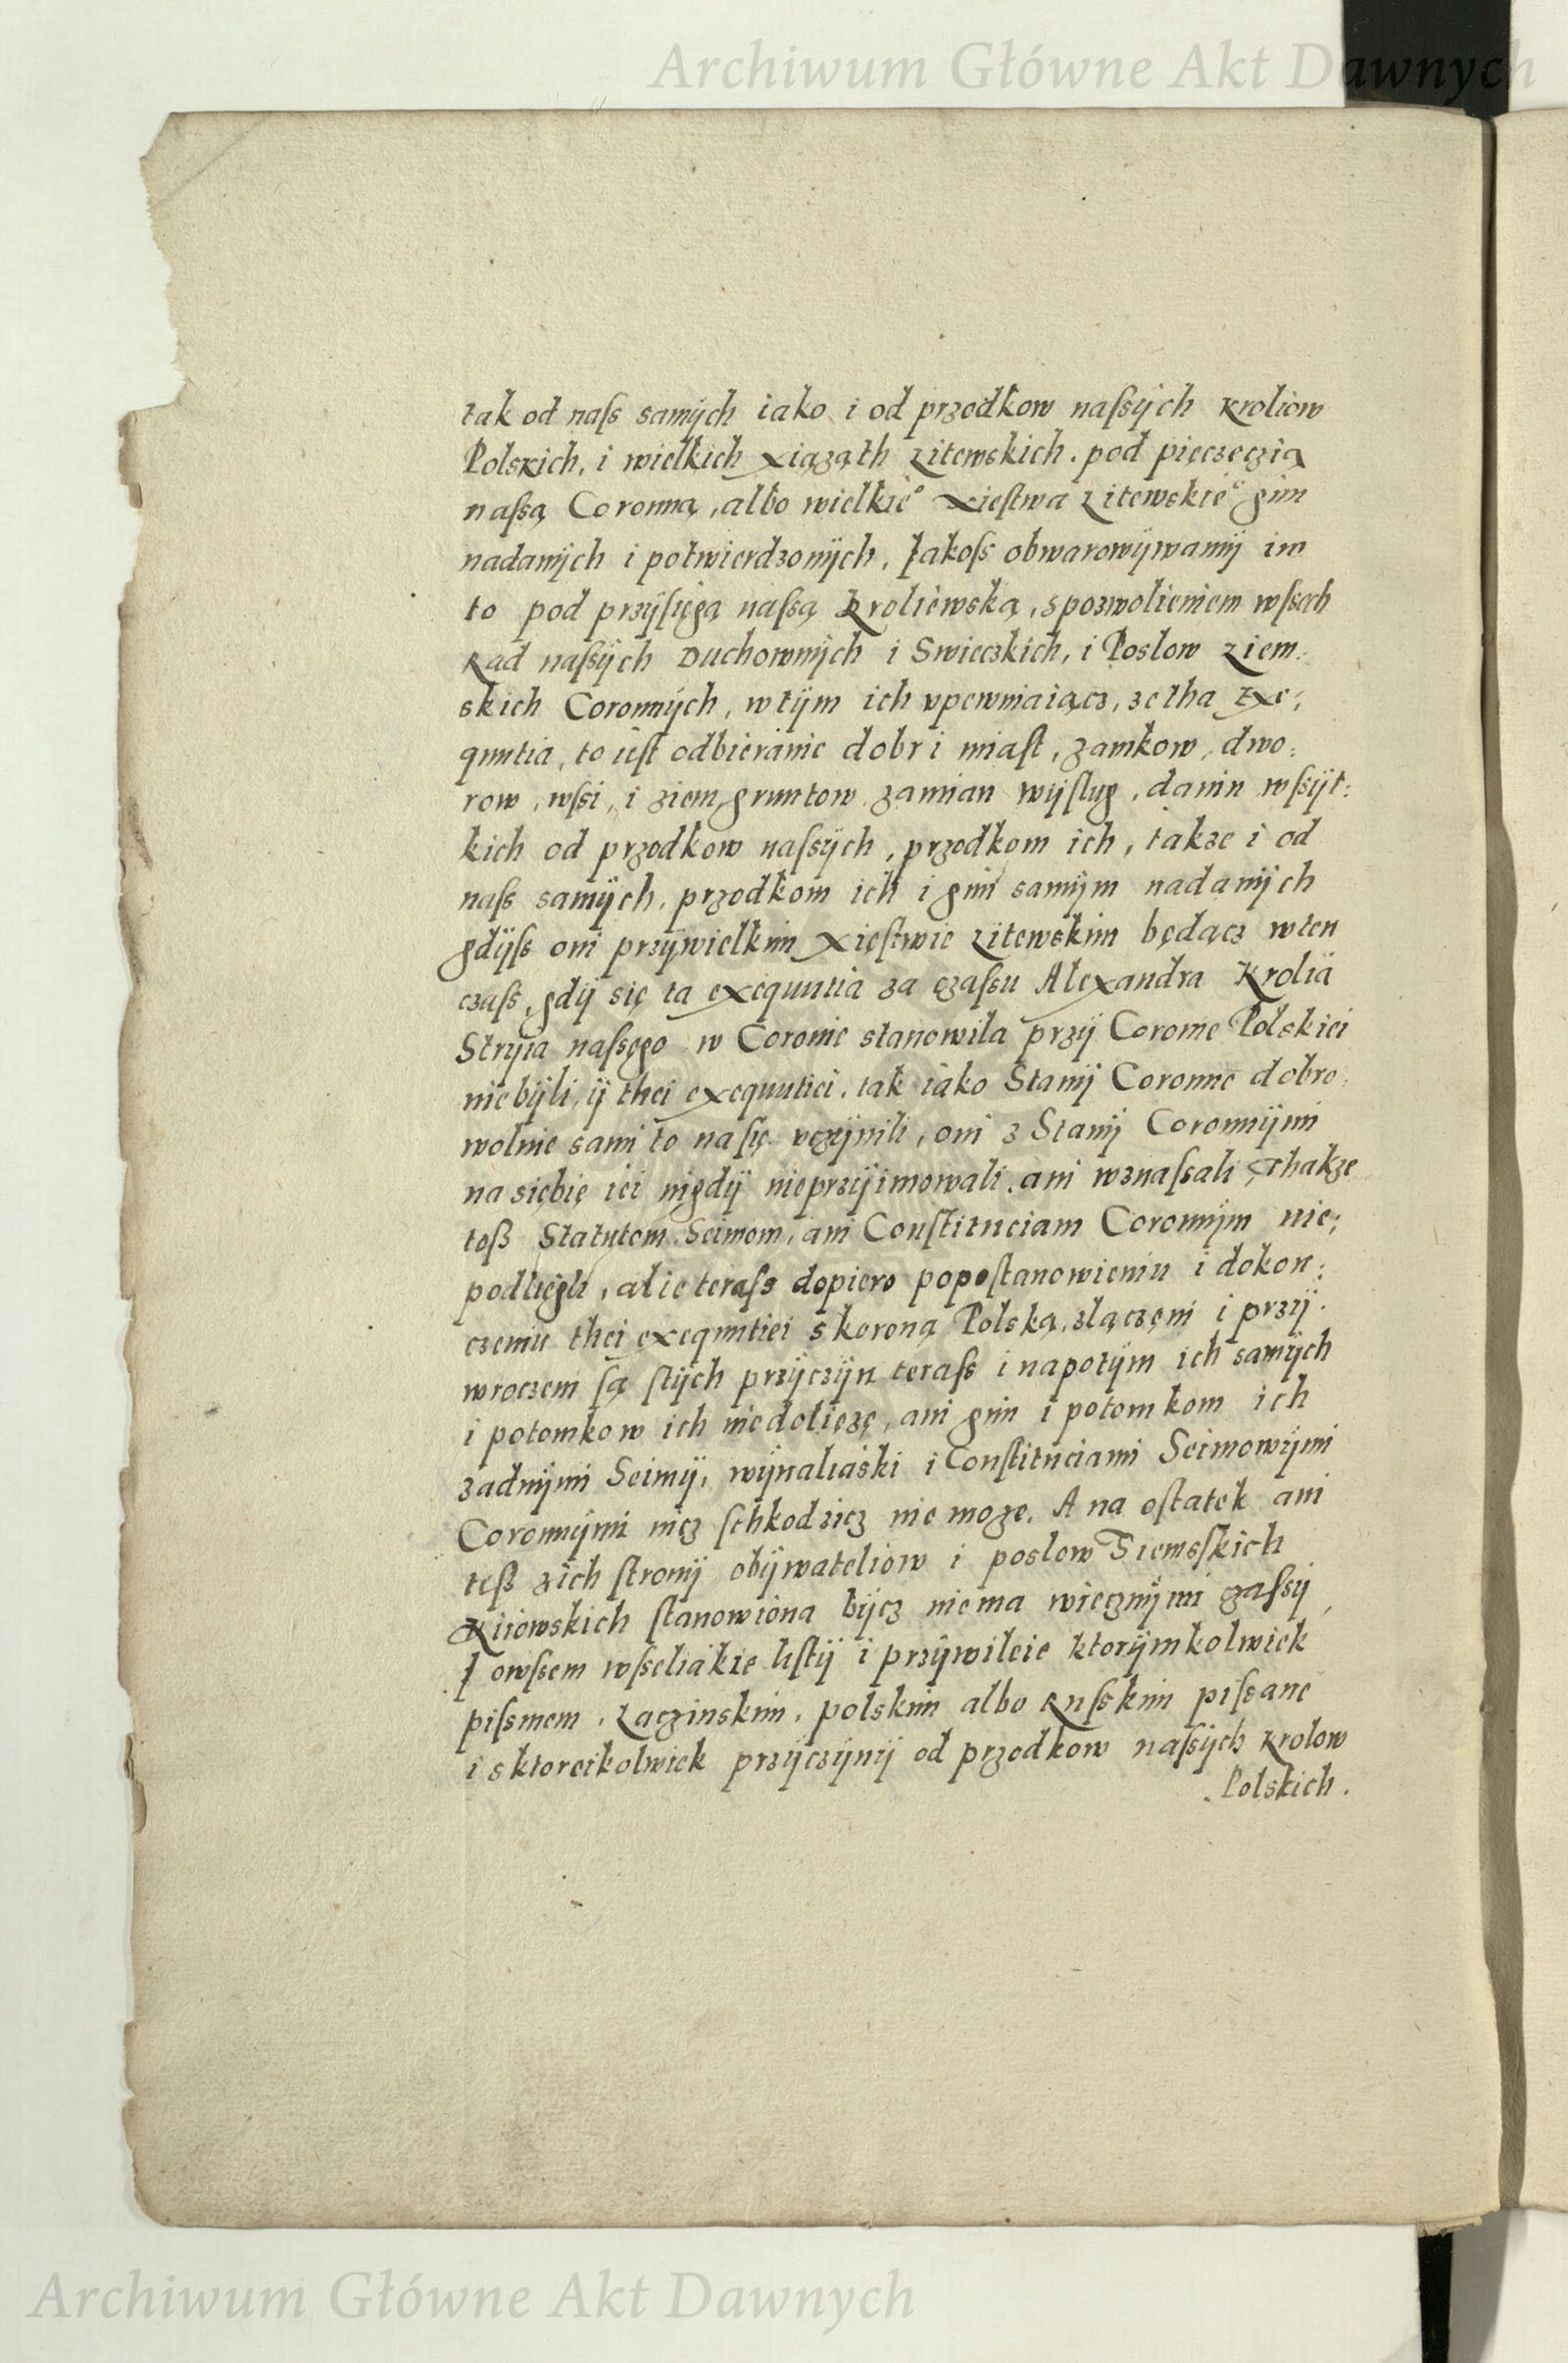 Archiwum Główne Akt Dawnych
tak od naſs samÿch iako i od przodkow naſsÿch Kroliow
Polskich, i wielkich Xiążąth Litewskich. pod pięczęczią
naſsą Coronną, albo wielkie° Xięſtwa Litewskie° gim
nadanÿch i potwierdzonÿch, Jakoſs obwarowÿwamÿ im
to pod przÿſięgą naſsą Kroliewską, s pozwolieniem wſsech
Rad naſsÿch Duchownÿch i Swieczkich, i Poslow Ziem:
skich Coronnÿch, w tÿm ich vpewniaiącz, ze tha Exe:
qnutia, to ieſt odbieranie dobr i miaſt, zamkow, dwo:
row, wſsi, i ziem gruntow zamian wÿſlug, danin wſsÿt:
kich od przodkow naſsÿch, przodkom ich, takze i od
naſs samÿch, przodkom ich i gim samÿm nadanÿch
gdÿſs oni przÿ wielkim Xięſtwie Litewskim będącz w ten
czaſs, gdÿ się ta exequutia za czaſsu Alexandra Krolia
Strÿia naſsego w Coronie stanowila przÿ Coronie Polskiei
nie bÿli, ÿ thei exequutiei, tak iako Stanÿ Coronne dobro:
wolnie sami to na ſię vczÿnili, oni z Stanÿ Coronnÿmi
na siębię iei nigdÿ nie przÿimowali. ani wznaſsali, thakze
teß Statutom, Seimom, ani Conſtituciam Coronnÿm nie:
podliegli, alie teraſs dopiero po poſtanowieniu i dokon:
czeniu thei exequutiei s koroną Polską, zlączęni i przÿ:
wroczeni ſą ſtÿch przÿczÿn teraſs i napotÿm ich samÿch
i potomkow ich nie doliężę, ani gim i potomkom ich
zadnÿmi Seimÿ, wÿnaliaski i Conſtituciami Seimowÿmi
Coronnÿmi nicz ſchkodzicz nie moze. A na oſtatek ani
teß z ich ſtronÿ obÿwateliow i poslow Ziemſskich
Kiiowskich ſtanowiona bÿcz nie ma wiecznÿmi czaſsÿ
I owſsem wſseliakie liſtÿ i przÿwileie ktorÿmkolwiek
piſsmem, Laczinskim, polskim albo Ruſskim piſsane
i s ktoreikolwiek przÿczÿnÿ od przodkow naſsÿch Krolow
Polskich.
Archiwum Główne Akt Dawnych